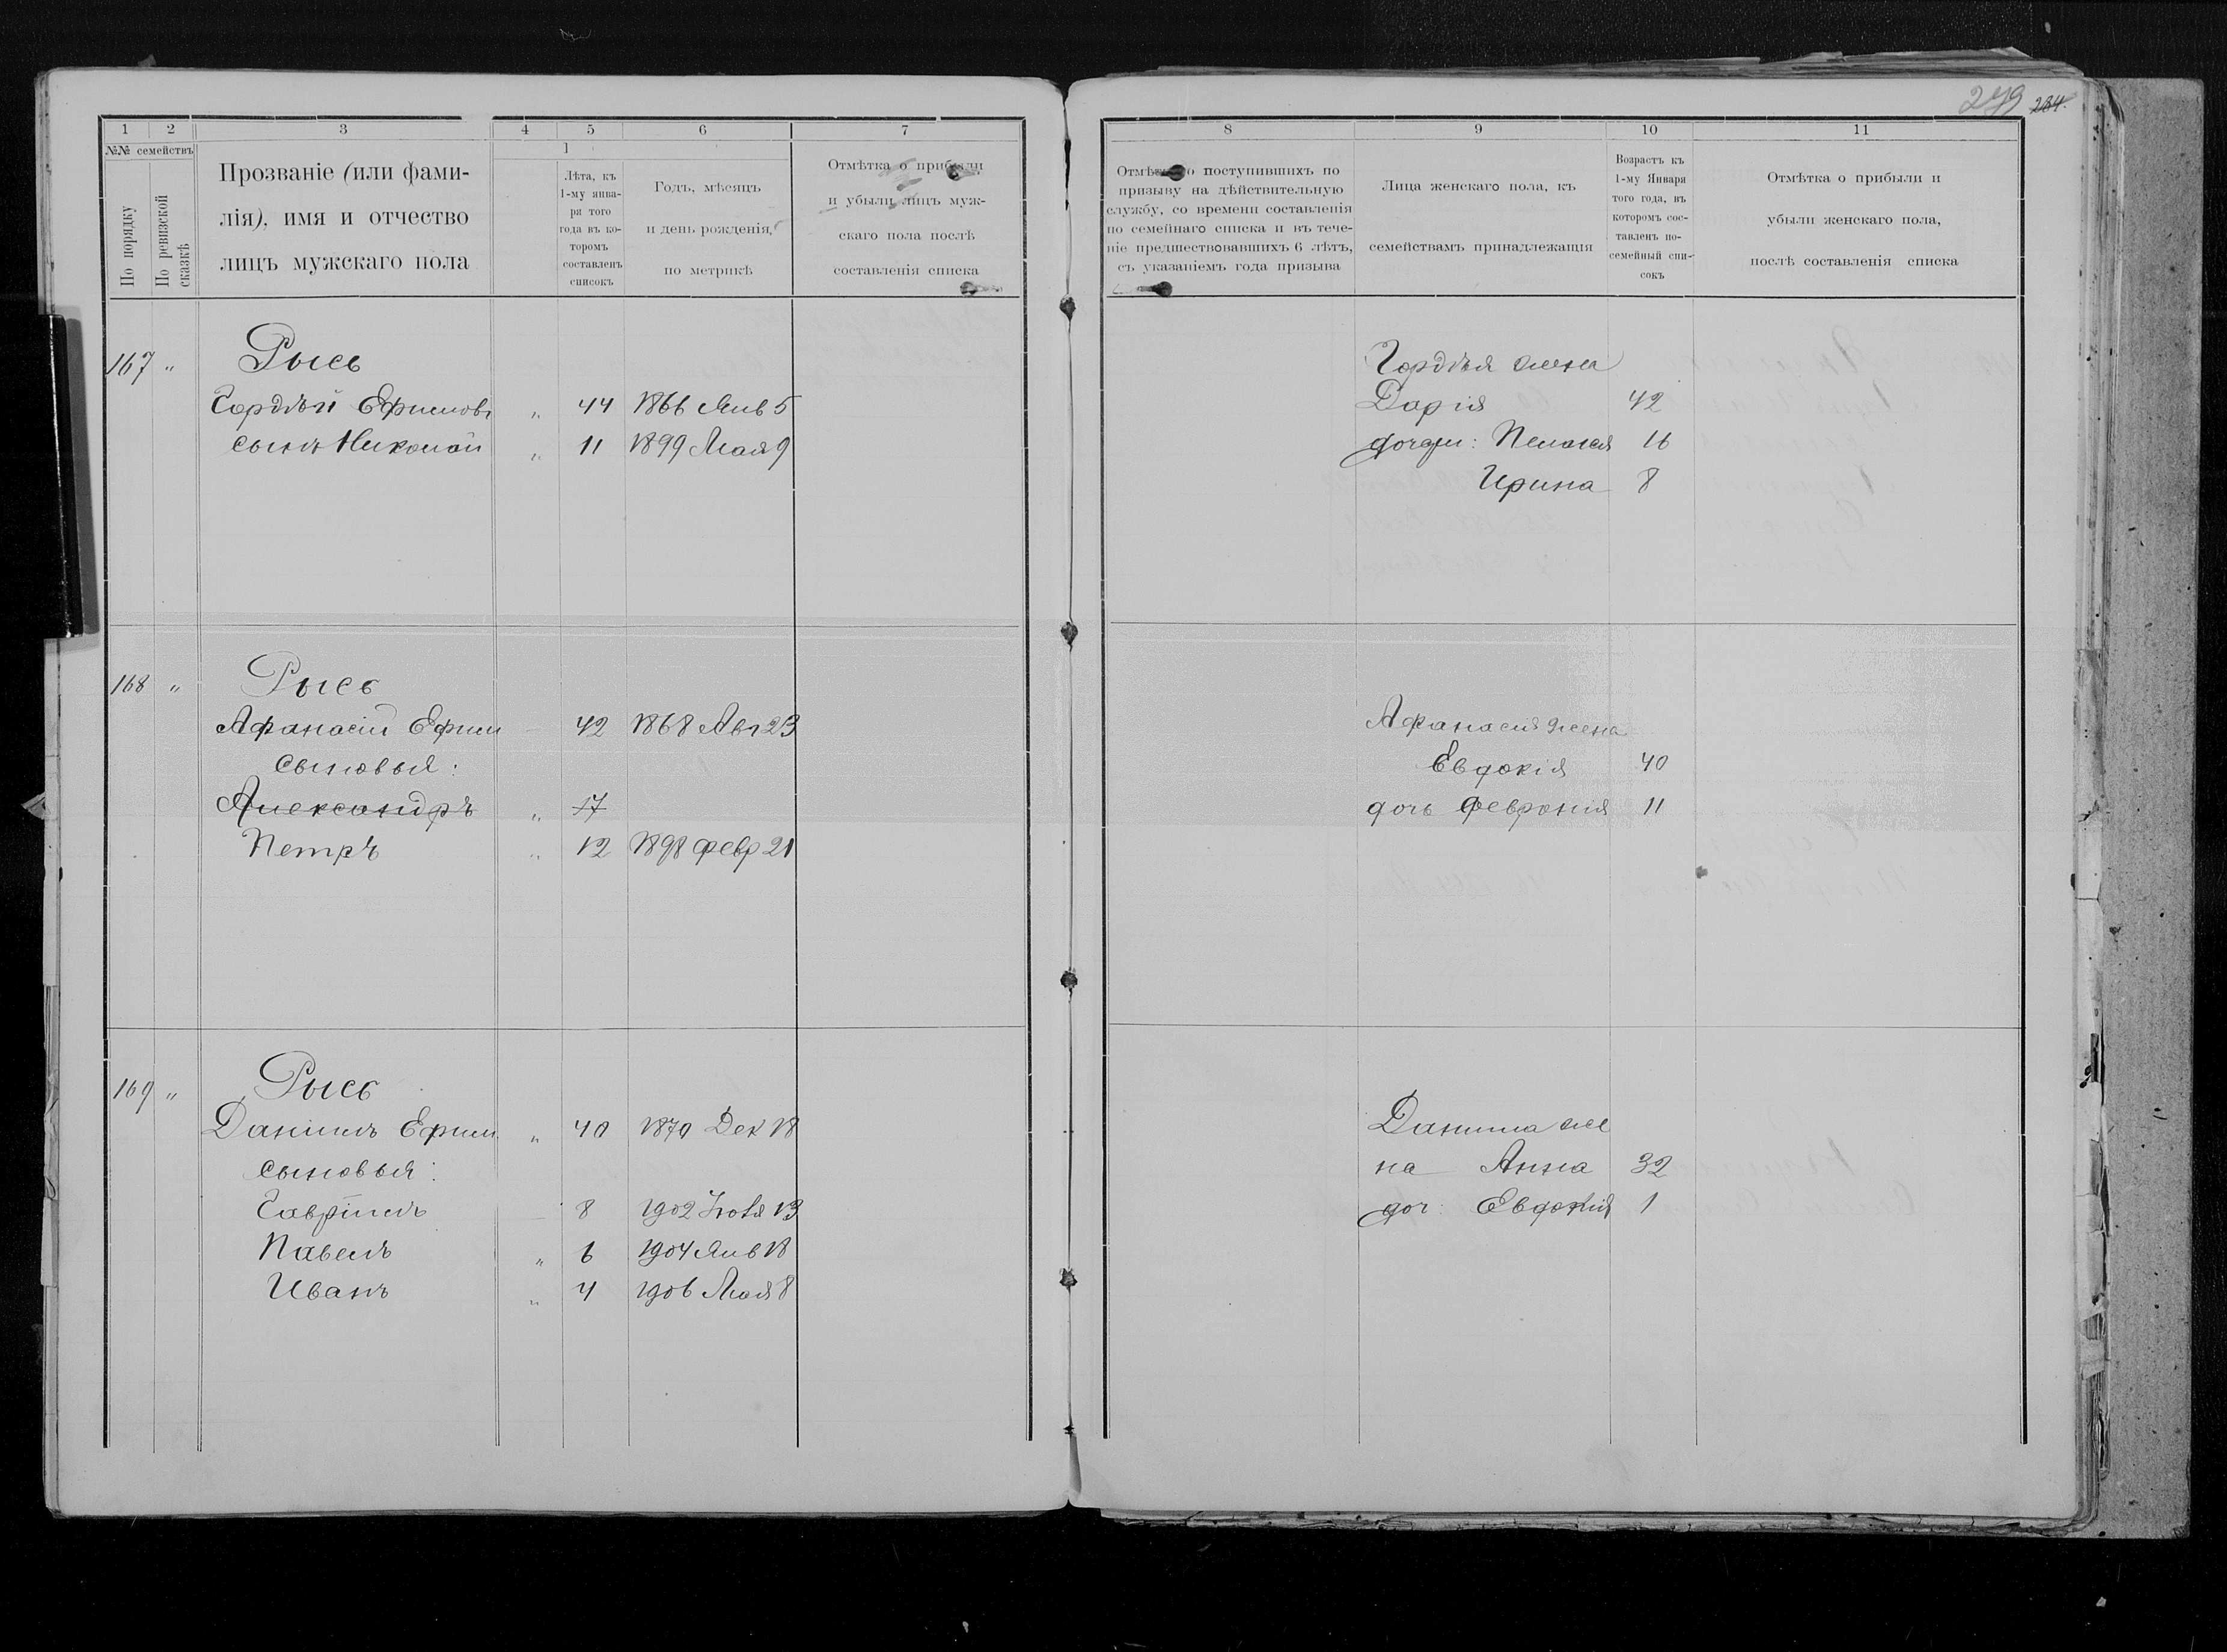 279 284.
1 2 3 4 5 6 7
№№ семействъ
По порядку
По ревизской сказкѣ
Прозваніе (или фами-
лія), имя и отчество
лицъ мужскаго пола
1
Лѣта, къ
1-му янва-
ря того
года въ ко-
торомъ
составленъ
списокъ
Годъ, мѣсяцъ
и день рожденія,
по метрикѣ
Отмѣтка о прибыли
и убыли лицъ муж-
скаго пола послѣ
составленія списка
8 9 10 11
Отмѣтка о поступившихъ по
призыву на дѣйствительную
службу, со времени составленія
по семейнаго списка и въ тече-
ніе предшествовавшихъ 6 лѣтъ,
съ указаніемъ года призыва
Лица женскаго пола, къ
семействамъ принадлежащія
Возрастъ къ
1-му Января
того года, въ
которомъ сос-
тавленъ по-
семейный спи-
сокъ
Отмѣтка о прибыли и
убыли женскаго пола,
послѣ составленія списка
167 " Рысь
Гордѣй Ефимовъ " 44 1866 Янв 5
сынъ Николай " 11 1899 Мая 9
Гордѣя жена
Дарія 42
дочери: Пелагея 16
Ирина 8
168 " Рысь
Афанасій Ефим - 42 1868 Авг 23
сыновья:
Александръ " 17
Петръ " 12 1898 февр 21
Афанасія жена
Евдокія 40
дочь Февронія 11
169 " Рысь
Даніилъ Ефим " 40 1870 Дек 18
сыновья:
Гавріилъ 8 1902 Іюля 13
Павелъ " 6 1904 Янв 18
Иванъ " 4 1906 Мая 8
Данила же
на Анна 32
доч: Евдокія 1